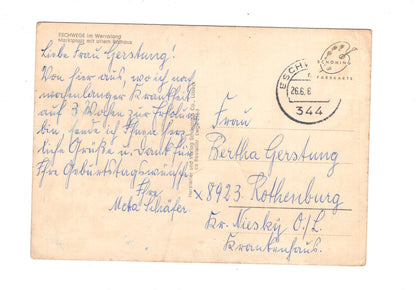 ESCHWEGE im Werratal
Marktplatz mit altem Rathaus
Liebe Frau Gerstung!
Von hier aus, wo ich nach
wochenlanger Krankheit
auf 3 Wochen zur Erholung
bin, sende ich Ihnen herz-
liche Grüße u. Dank für
Ihre Geburtstagswünsche
Ihre
Meta Schäfer
SCHÖNING
FARBKARTE
ESCHW
26.6.6
344
Frau
Bertha Gerstung
x 8923 Rothenburg
Kr. Niesky O/L.
Krankenhaus.